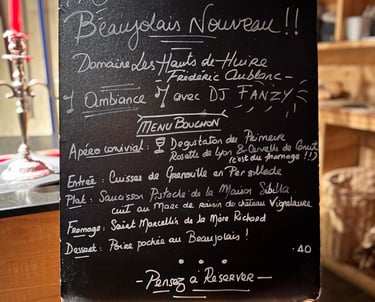 Beaujolais Nouveau !!
Domaine Les Hauts de Huire
- Frédéric Aublanc -
Ambiance avec DJ FANZY
MENU BOUCHON
Apéro convivial : Dégustation des Primeurs
Rosette de Lyon & Cervelle de Canut
(c'est du fromage !!)
Entrée : Cuisses de Grenouille en Persillade
Plat : Saucisson Pistache de la Maison Sibilia
cuit au Marc de raisin du château Vignelaure
Fromage : Saint Marcellin de la Mère Richard
Dessert : Poire pochée au Beaujolais !
40
- Pensez à Réserver -